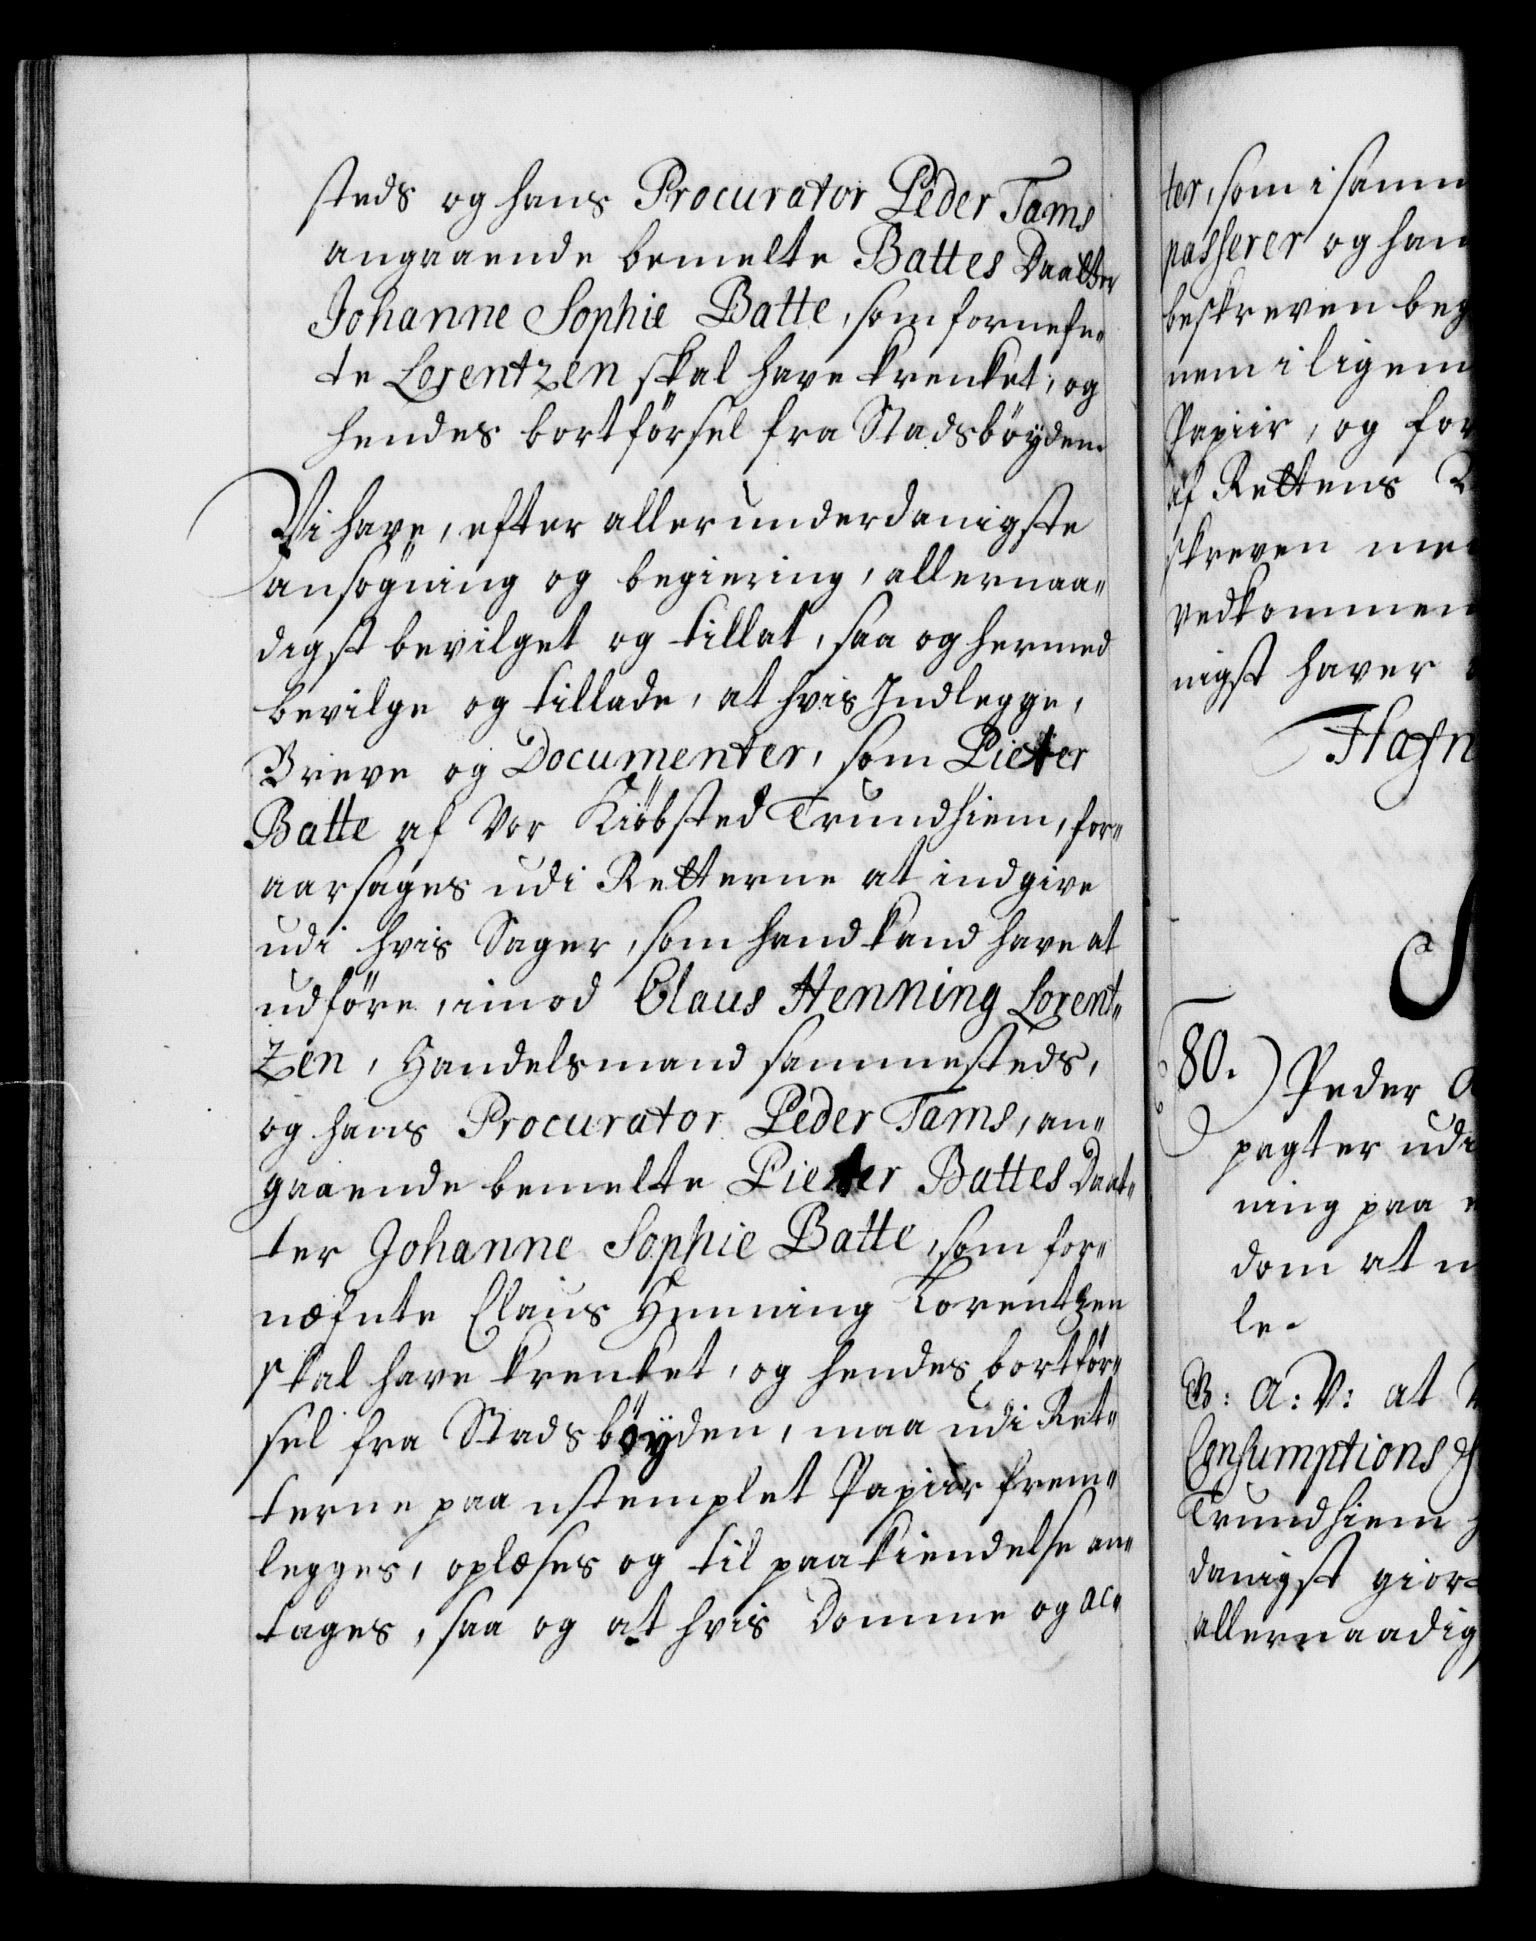 steds og hans Procurator Peder Tams
angaaende bemelte Battes Daatter
Johanne Sophie Batte, som fornefn„
te Lorentzen skal have krenket, og
hendes bortförsel fra Stadsböyden
Vi have, efter allerunderdanigste
ansögning og begiering, allernaa„
digst bevilget og tillat, saa og hermed
bevilge og tillade, at hvis Indlegge,
Breve og Documenter, som Pieter
Batte af Vor Kiöbsted Trundhiem, for„
aarsages udi Retterne at indgive
udi hvis Sager, som hand kand have at
udföre, imod Claus Henning Lorent„
zen, Handelsmand sammesteds,
og hans Procurator Peder Tams, an„
gaaende bemelte Pieter Battes Daat„
ter Johanne Sophie Batte, som for„
næfnte Claus Henning Lorentzen
skal have krenket, og hendes bortför„
sel fra Stadsböyden, maa udi Ret„
terne paa ustemplet Papiir frem„
legges, oplæses og til paakiendelse an„
tages, saa og at hvis Domme og ac„
ter, som i samm
passerer og han
beskreven beg
nem i ligem
Papiir, og for
af Rettens
skreven me
vedkommen
nigst haver
Hafn
80.) Peder
pagter udi
ning paa
dom at
le.
B: A: V: at
Consumptions
Trundhiem
danigst gior
allernaadig